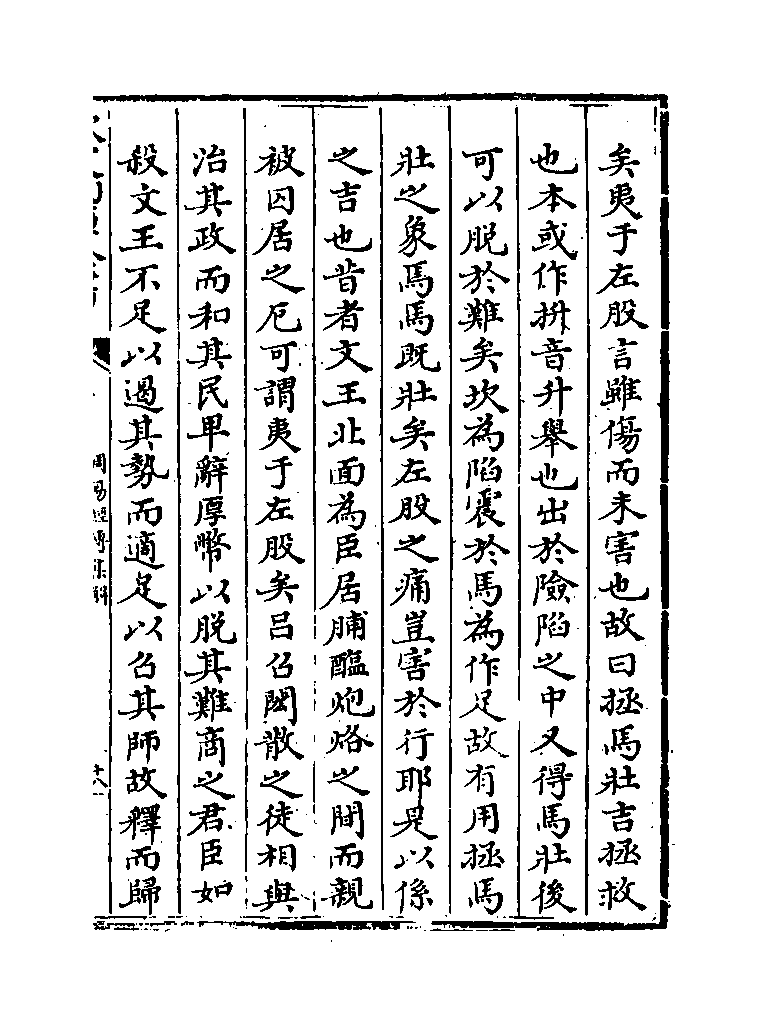 矣夷于左股言雖傷而未害也故曰拯馬壯吉拯救
也本或作拚音升舉也出於險陷之中又得馬壯後
可以脱於難矣坎為陷震於馬為作足故有用拯馬
壯之象焉馬既壯矣左股之痛豈害於行耶是以係
之吉也昔者文王北面為臣居脯醢炮烙之間而親
被囚居之厄可謂夷于左股矣吕召閎散之徒相與
治其政而和其民卑辭厚幣以脱其難商之君臣如
殺文王不足以遏其勢而適足以召其師故釋而歸
周易經傳集解